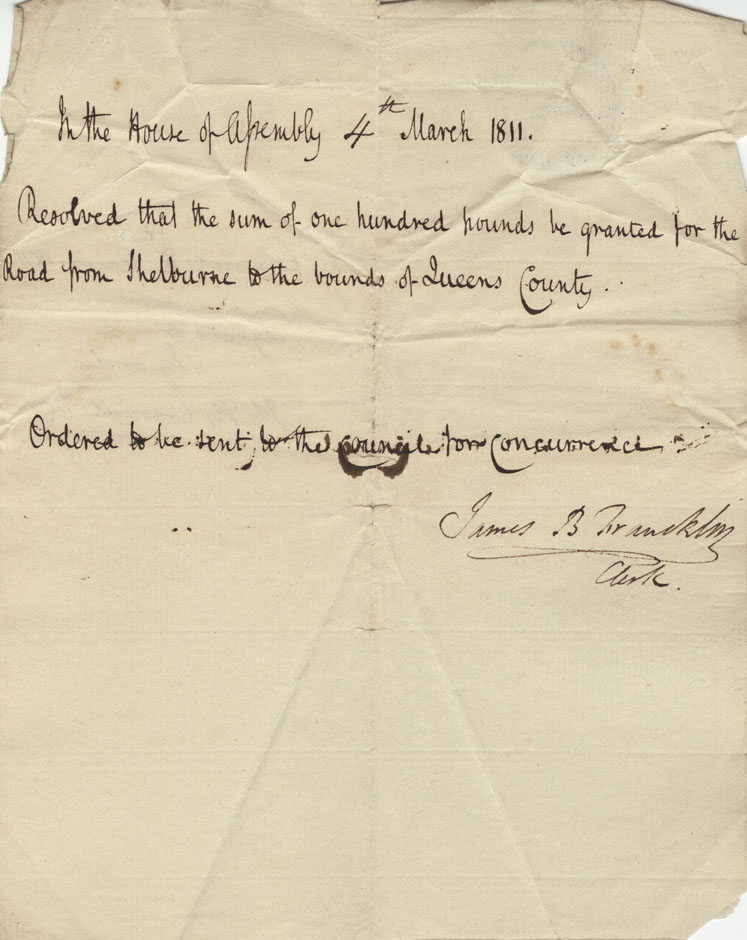 In the House of Assembly 4th March 1811.
Resolved that the sum of one hundred pounds be granted for the
Road from Shelburne to the bounds of Queens County.
Ordered to be sent to the council for Concurrence
James B Francklin
Clerk.